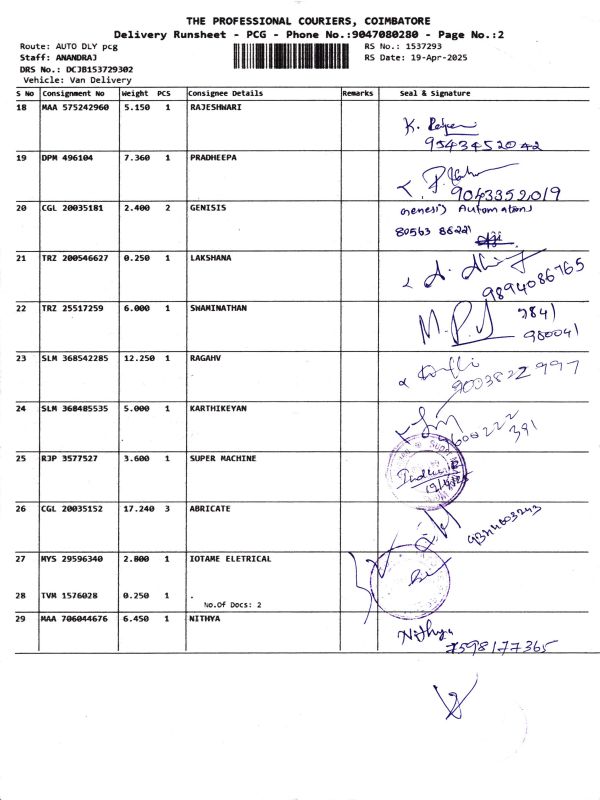 THE PROFESSIONAL COURIERS, COIMBATORE
Delivery Runsheet - PCG - Phone No.:9047080280 - Page No.:2
Route: AUTO DLY pcg
RS No.: 1537293
Staff: ANANDRAJ
RS Date: 19-Apr-2025
DRS No.: DCJB153729302
Vehicle: Van Delivery
S No Consignment No Weight PCS Consignee Details Remarks Seal & Signature
18 MAA 575242960 5.150 1 RAJESHWARI
9543452042
19 DPM 496104 7.360 1 PRADHEEPA
9043352019
20 CGL 20035181 2.400 2 GENISIS Genesis Automations
80563 86221
21 TRZ 200546627 0.250 1 LAKSHANA
9894086765
22 TRZ 25517259 6.000 1 SWAMINATHAN
9841
980041
23 SLM 368542285 12.250 1 RAGAHV
9003822997
24 SLM 368485535 5.000 1 KARTHIKEYAN
391
25 RJP 3577527 3.600 1 SUPER MACHINE
26 CGL 20035152 17.240 3 ABRICATE
27 MYS 29596340 2.800 1 IOTAME ELETRICAL
28 TVM 1576028 0.250 1 .
No.Of Docs: 2
29 MAA 706044676 6.450 1 NITHYA
Nithya
7598177365